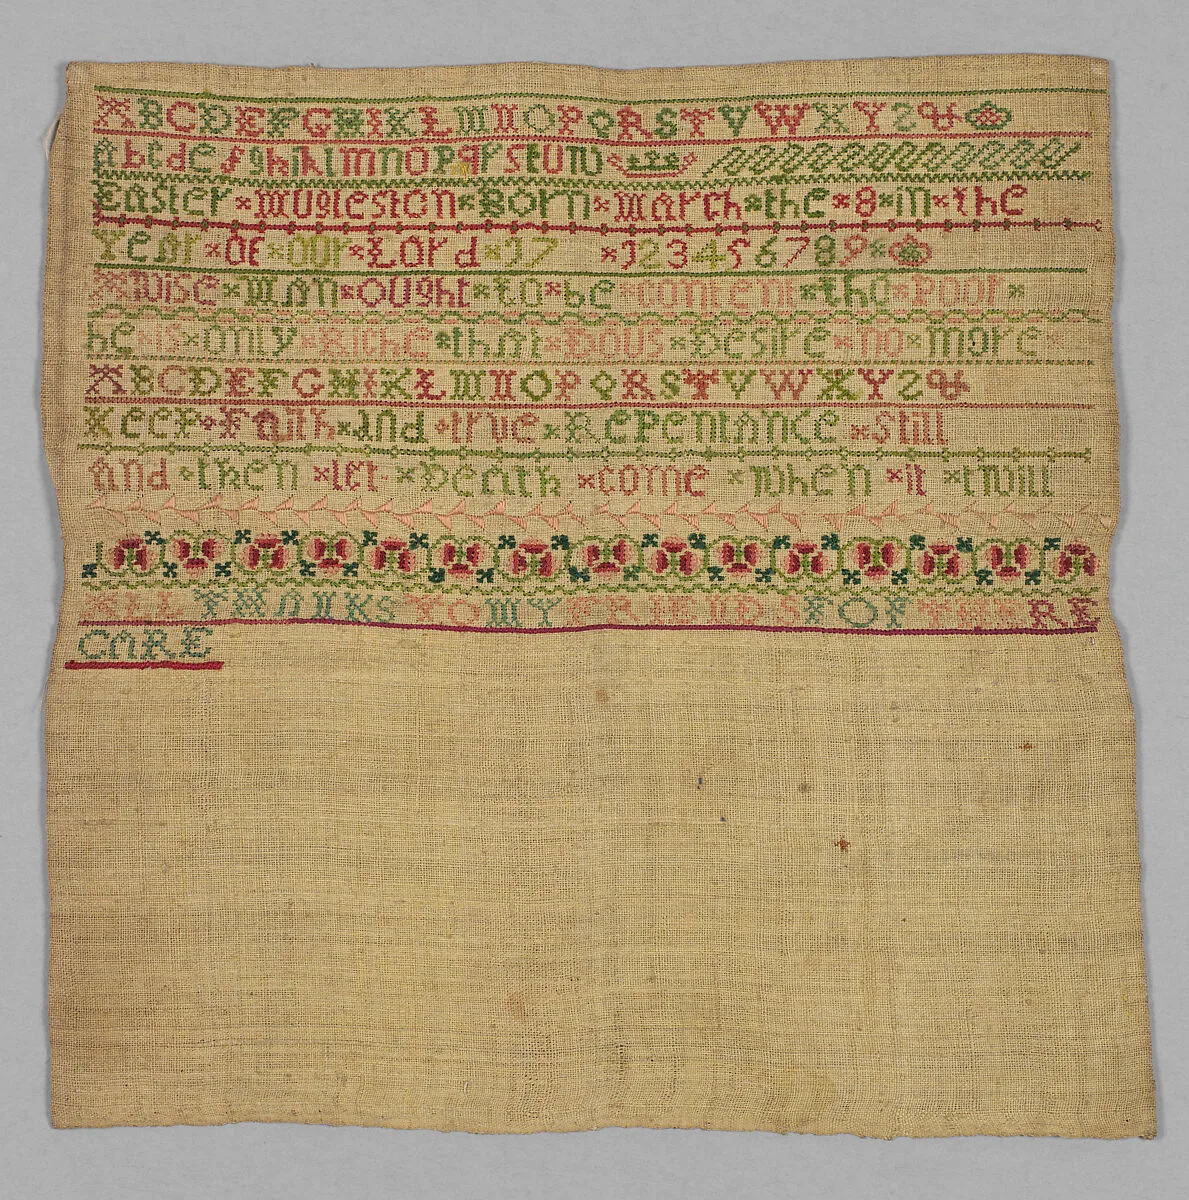 A B C D E F G H I K L M N O P Q R S T V W X Y Z &
a b c d e f g h i k l m n o p q r s t u w
Easter Mugleston Born March the 8 in the
Year of our Lord 17 1 2 3 4 5 6 7 8 9
A Wise Man Ought to be content tho Poor
he is only Riche that Dous Desire no more
A B C D E F G H I K L M N O P Q R S T V W X Y Z &
Keep Faith and true Repentance Still
And then let Death come when it twill
ALL THANKS TO MY FRIENDS FOR THERE
CARE